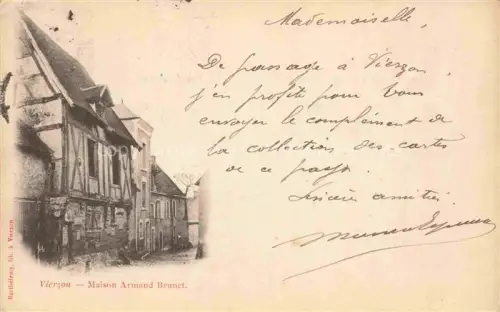 Mademoiselle,
De passage à Vierzon
j'en profite pour Vous
envoyer le complément de
la collection des cartes
de ce pays.
Sincère amitié.
Vierzon — Maison Armand Brunet.
lib. à Vierzon